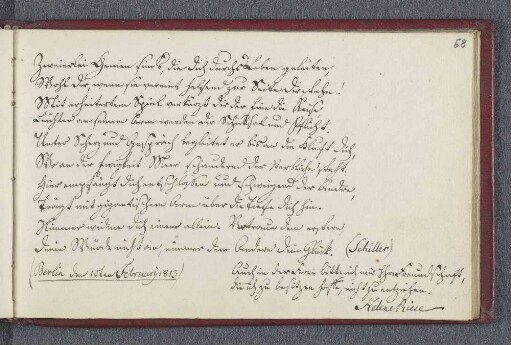 68
Zweierlei Genien sind's, die dich durchs Leben geleiten
Wohl dir, wenn sie vereint helfend zur Seite dir stehn!
Mit erheiterndem Spiel verkürzt dir der Eine die Reise
Leichter an seinem Arm werden dir Schicksal und Pflicht.
Unter Scherz und Gespräch begleitet er bis an die Kluft dich,
Wo an der Ewigkeit Meer schaudernd der Sterbliche steht.
Hier empfängt dich entschlossen und schweigend der Andre,
Trägt mit gigantischem Arm über die Tiefe dich hin.
Nimmer widme dich einem allein. Vertraue dem erstern
Deine Würde nicht an, nimmer dem Andern dein Glück. (Schiller)
(Berlin den 10ten February 1813)
Auch in der Ferne bitte ich mir Ihre Freundschaft,
die ich zu besitzen hoffe, nicht zu entziehen.
Helene